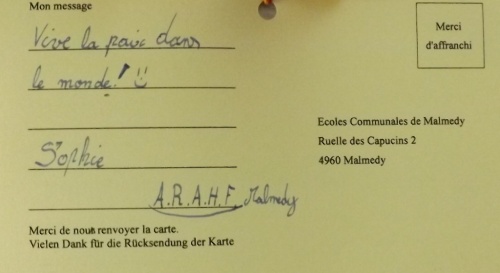 Mon message
Vive la paix dans
le monde! :)
Sophie
A.R.A.H.F. Malmedy
Merci de nous renvoyer la carte.
Vielen Dank für die Rücksendung der Karte
Merci
d'affranchi
Ecoles Communales de Malmedy
Ruelle des Capucins 2
4960 Malmedy